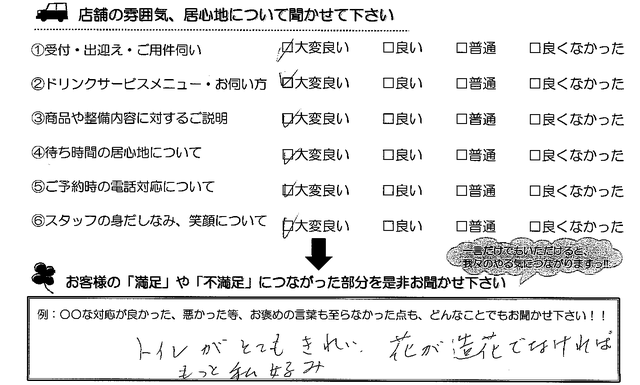 店舗の雰囲気、居心地について聞かせて下さい
①受付・出迎え・ご用件伺い ☑大変良い □良い □普通 □良くなかった
②ドリンクサービスメニュー・お伺い方 ☑大変良い □良い □普通 □良くなかった
③商品や整備内容に対するご説明 ☑大変良い □良い □普通 □良くなかった
④待ち時間の居心地について ☑大変良い □良い □普通 □良くなかった
⑤ご予約時の電話対応について ☑大変良い □良い □普通 □良くなかった
⑥スタッフの身だしなみ、笑顔について ☑大変良い □良い □普通 □良くなかった
一言だけでもいただけると、
我々のやる気につながりますっ!!
お客様の「満足」や「不満足」につながった部分を是非お聞かせ下さい
例：〇〇な対応が良かった、悪かった等、お褒めの言葉も至らなかった点も、どんなことでもお聞かせ下さい！！
トイレがとてもきれい。花が造花でなければ
もっと私好み